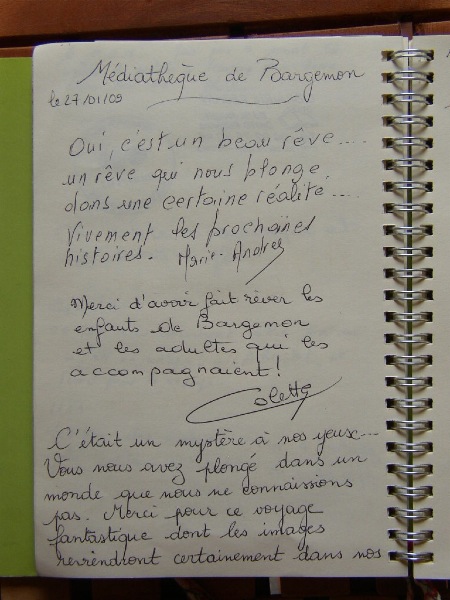 Médiathèque de Bargemon
le 27/01/09
Oui, c'est un beau rêve....
un rêve qui nous plonge
dans une certaine réalité....
Vivement les prochaines
histoires. Marie-Andrée
Merci d'avoir fait rêver les
enfants de Bargemon
et les adultes qui les
accompagnaient !
Colette
C'était un mystère à nos yeux...
Vous nous avez plongé dans un
monde que nous ne connaissions
pas. Merci pour ce voyage
fantastique dont les images
reviendront certainement dans nos